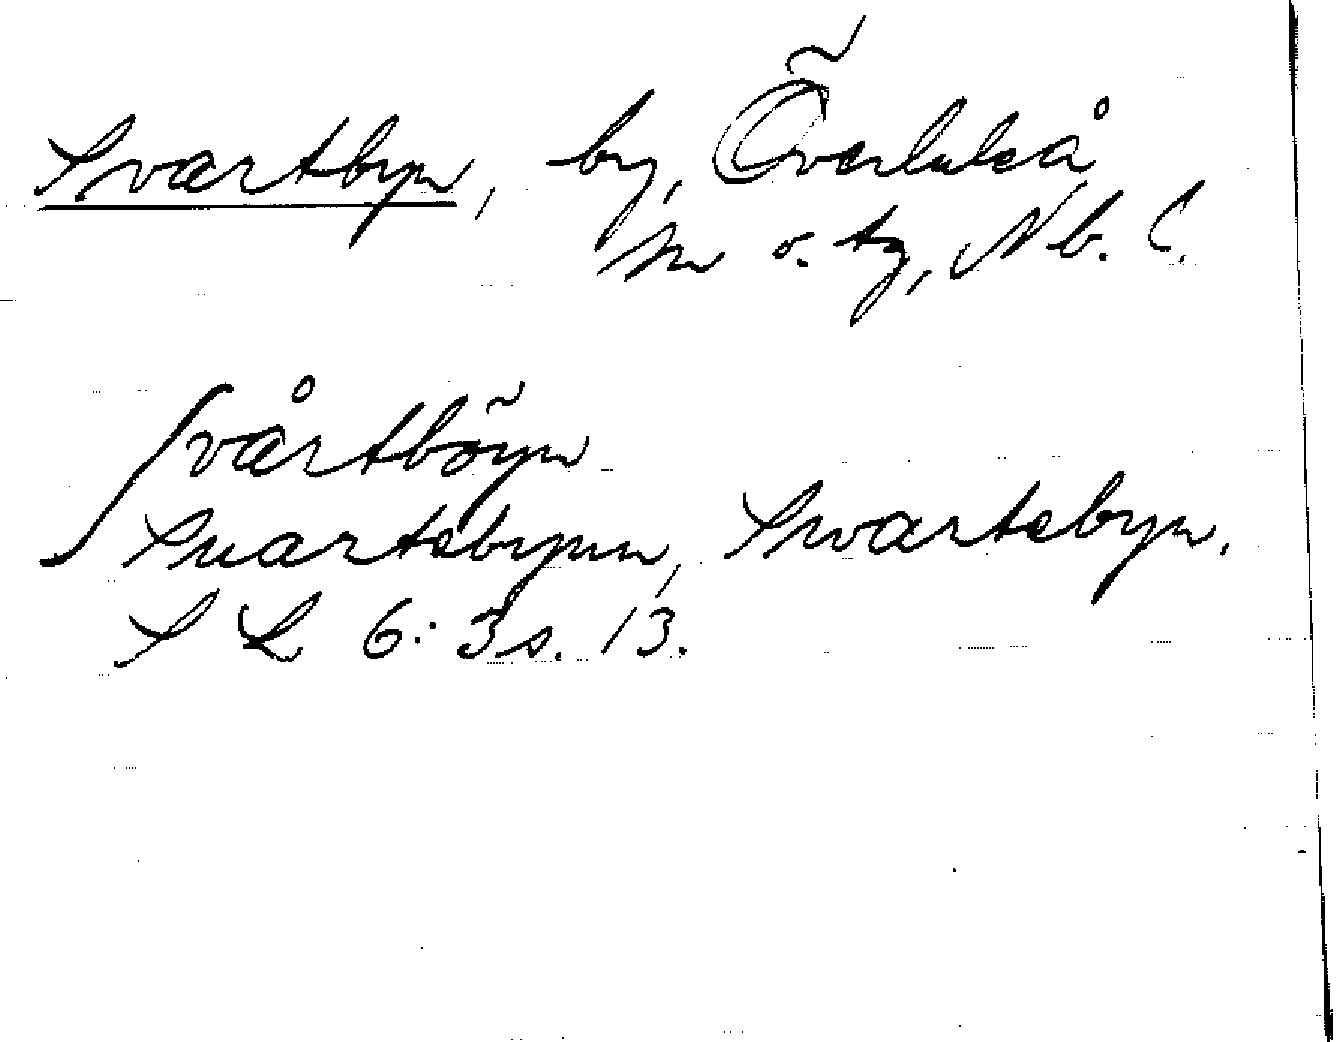 Svartbyn, by, Överluleå
sn o. tg, Nb. l.
Svårtböyn
Suartebynn, Swartebyn.
S L 6:3 s. 13.